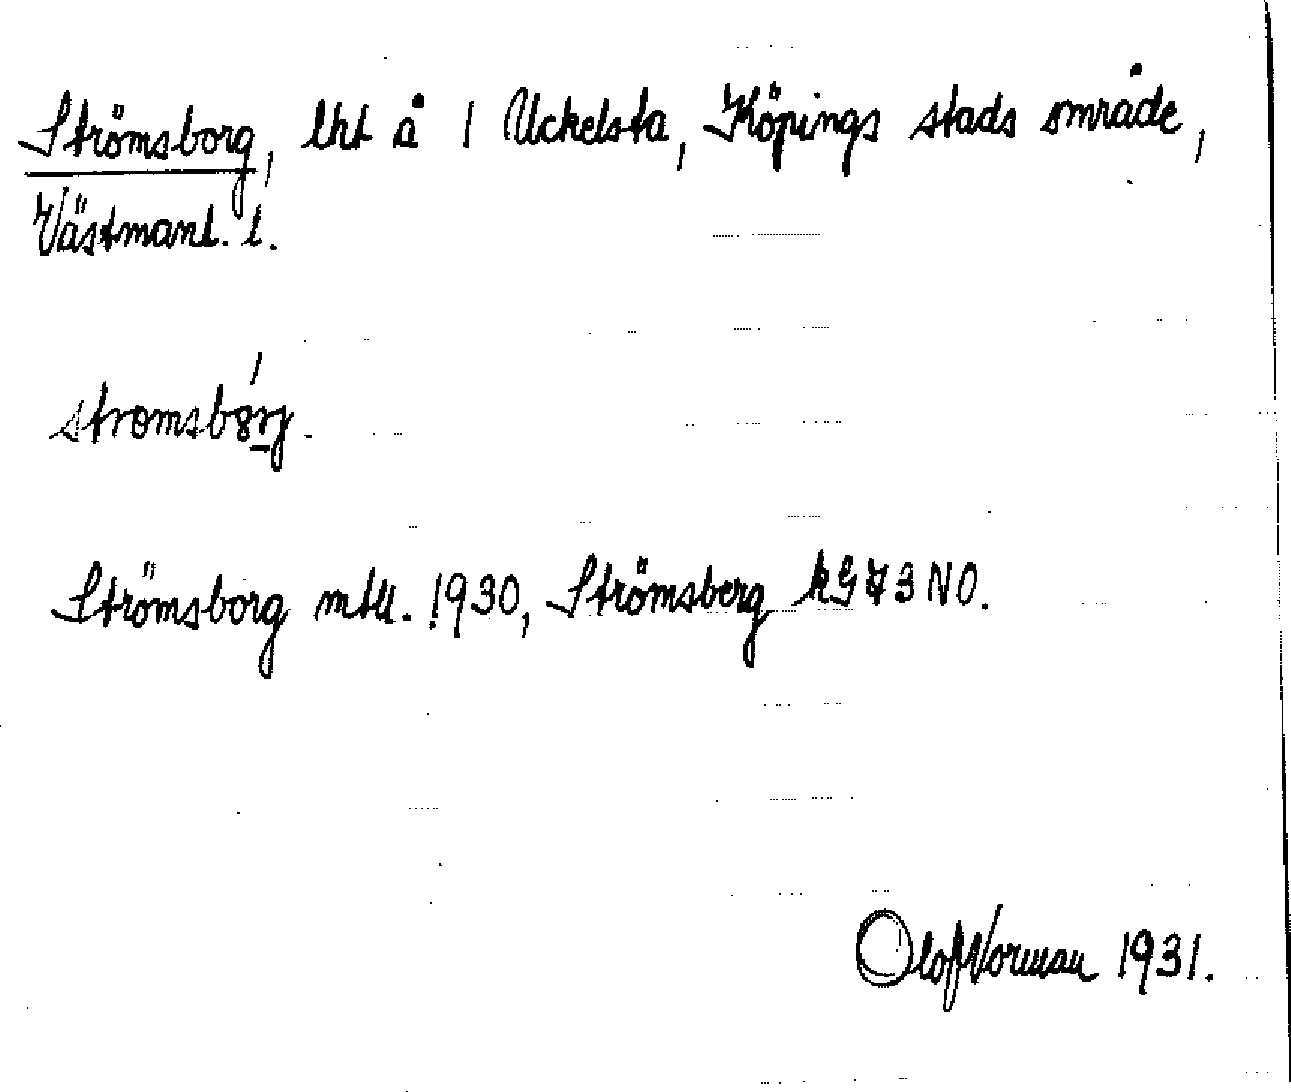 Strömsborg, lht å 1 Uckelsta, Köpings stads område,
Västmanl. l.
stromsbȯrj
Strömsborg mtll. 1930, Strömsberg kG 73 NO.
Olof Norman 1931.